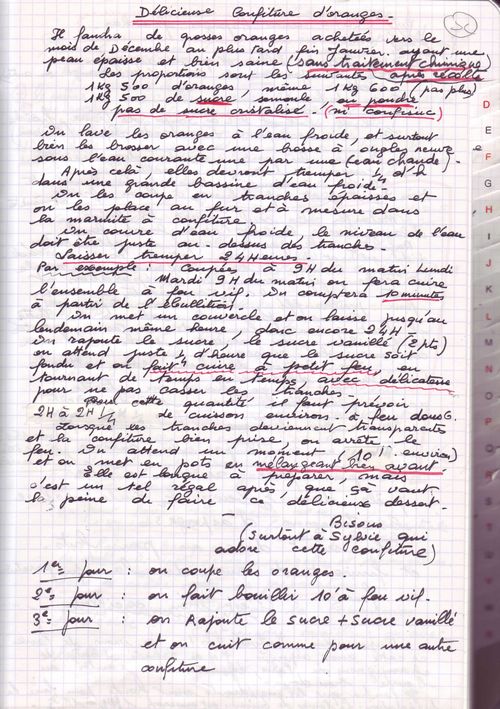 Délicieuse Confiture d'oranges.
Il faudra de grosses oranges achetées vers le
mois de Décembre au plus tard fin Janvier. ayant une
peau épaisse et bien saine (sans traitement chimique)
Les proportions sont les suivantes après récolte
1 Kg 500 d'oranges, même 1 Kg 600, (pas plus)
1 Kg 500 de sucre, semoule, ou poudre
pas de sucre cristalisé. (ni confisuc)
On lave les oranges à l'eau froide, et surtout
bien les brosser avec une brosse à ongles neuve
sous l'eau courante une par une (eau chaude).
Après celà, elles devront tremper 1/4 d'h
dans une grande bassine d'eau froide.
On les coupe en tranches épaisses et
on les place au fur et à mesure dans
la marmite à confiture.
On couvre d'eau froide, le niveau de l'eau
doit être juste au-dessus des tranches.
Laisser tremper 24 Heures.
Par exemple : Coupées à 9H du matin Lundi
Mardi 9H du matin on fera cuire
l'ensemble à feu vif. On comptera 10 minutes
à partir de l'ébullition.
On met un couvercle et on laisse jusqu'au
lendemain même heure, donc encore 24H.
On rajoute le sucre, le sucre vanillé (2 pts)
on attend juste 1/4 d'heure que le sucre soit
fondu et on fait cuire à petit feu, en
tournant de temps en temps avec délicatesse
pour ne pas casser les tranches.
Pour cette quantité il faut prévoir
2H à 2H 1/2 de cuisson environ à feu doux.
Lorsque les tranches deviennent transparentes
et la confiture bien prise, on arrête le
feu. On attend un moment (10' environ)
et on met en pots en mélangeant bien avant.
Elle est longue à préparer, mais
c'est un tel régal après, que çà vaut
la peine de faire ce délicieux dessert.
Bisous
(surtout à Sylvie qui
adore cette confiture)
1er jour : on coupe les oranges.
2e jour : on fait bouillir 10' à feu vif.
3e jour : on Rajoute le sucre + sucre vanillé
et on cuit comme pour une autre
confiture
D
E
F
G
H
I
J
K
L
M
N
O
P
Q
R